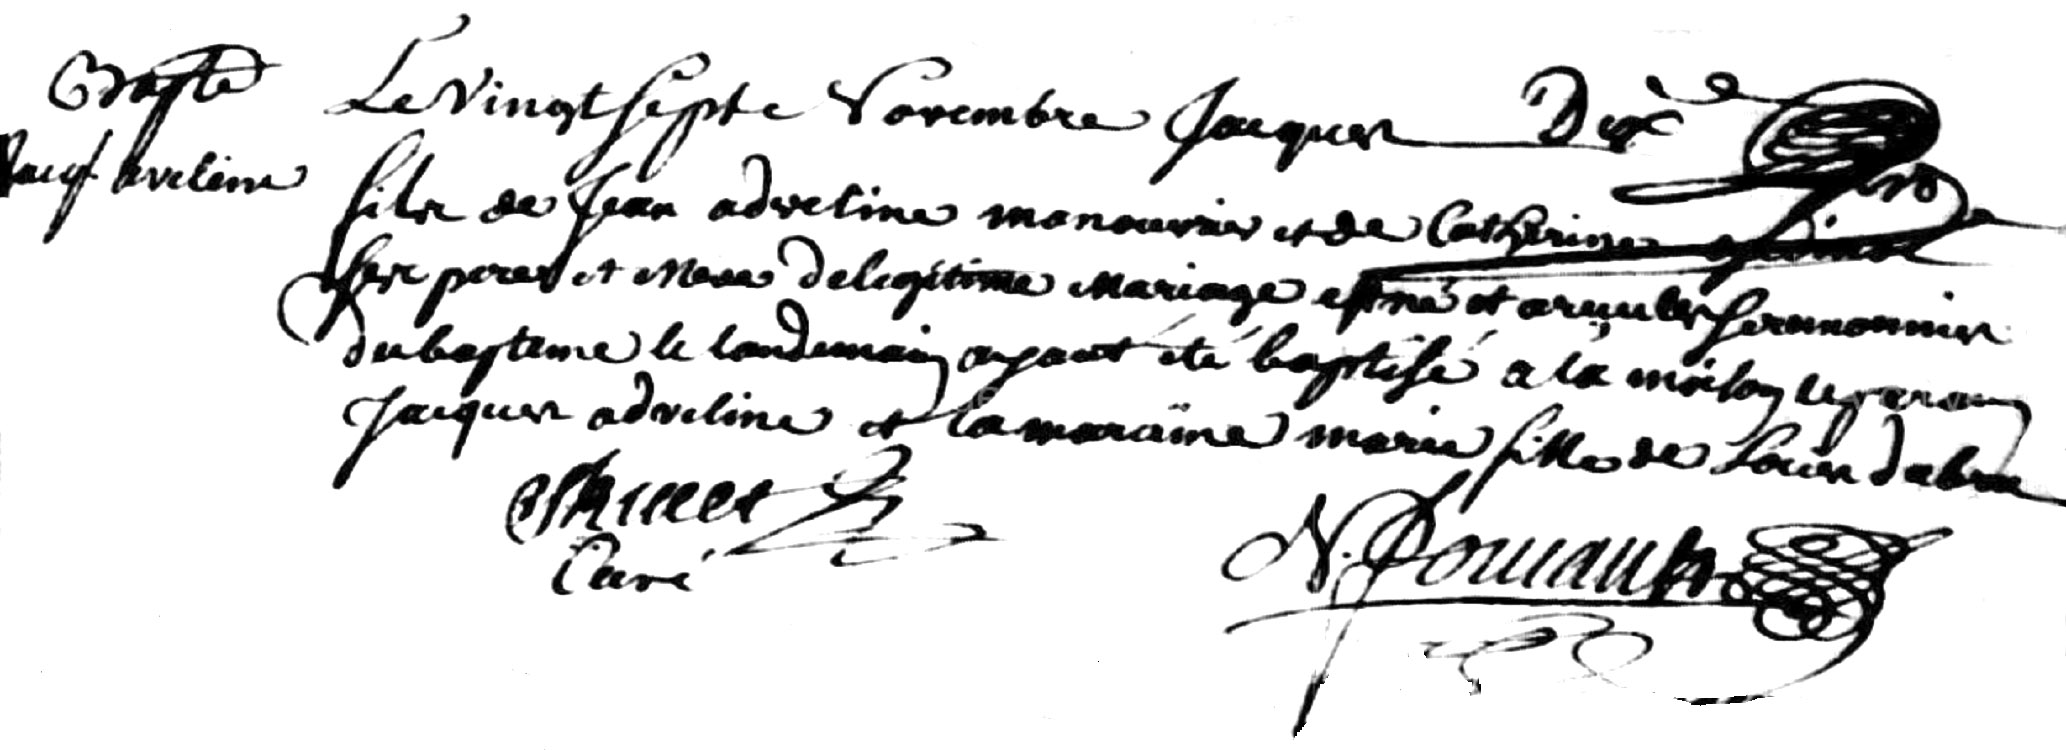 Bapte
Jacq. aveline
Le Vingt septe Novembre Jacques
fils de Jean adveline manouvrier et de Catherine
ses peres et Mere de legitime Mariage est né et a recu les seremonnies
du bapteme le landemain ayant été baptisé a la maison le parain
Jacques adveline et la maraine marie fille de Louis
Curé
N.